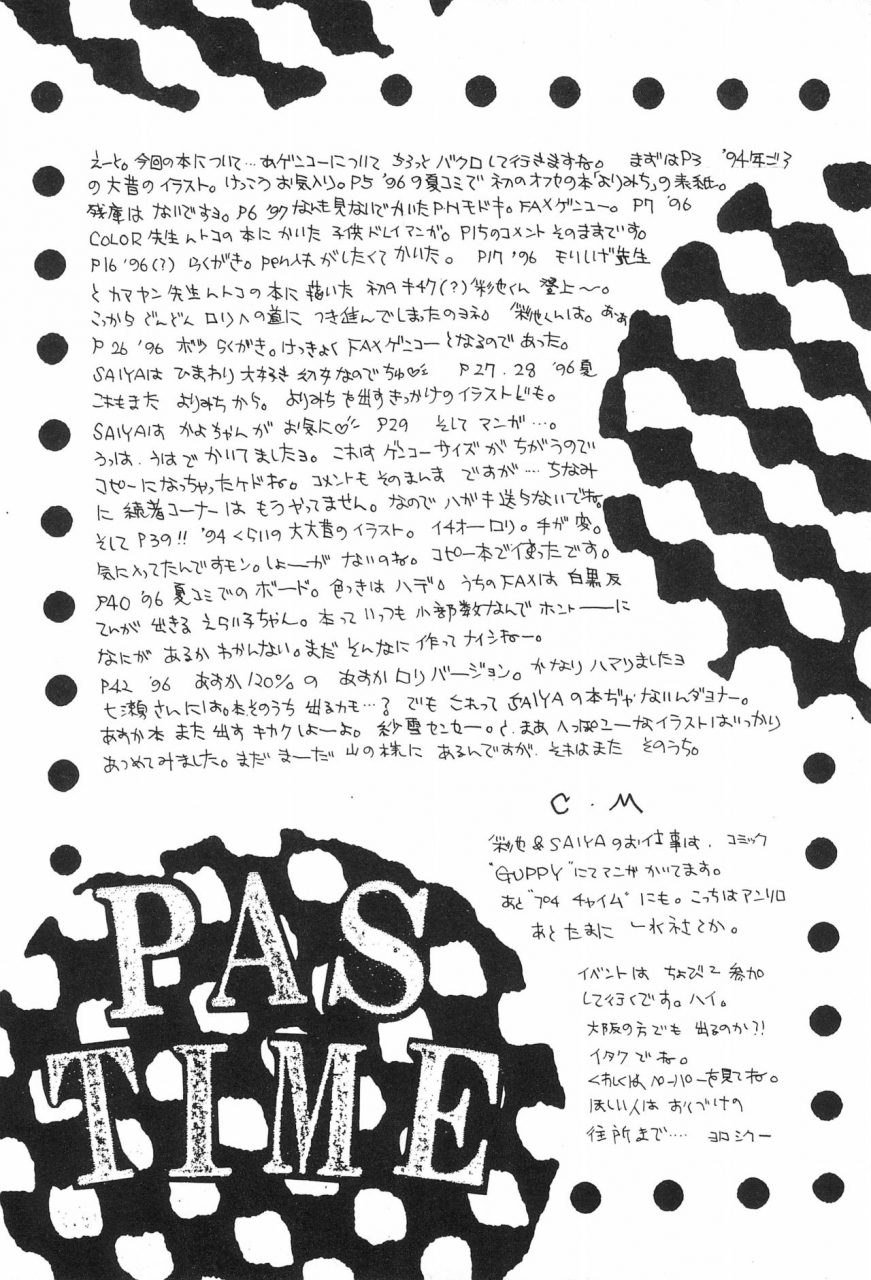 えーと。今回の本について…あゲンコーについて ちろっと バクロして行きますね。 まずはP3 '94年ごろ
の大昔のイラスト。けっこう お気入り。P5 '96の夏コミで 初のオフセの本「よりみち」の表紙。
残庫は ないですヨ。P6 '97 なんも見ないでかいたP.Nモドキ。FAXゲンコー。P7 '96
COLOR先生んトコの本に かいた 子供ドレイマンガ。P15のコメント そのまますです。
P16 '96(?) らくがき。pen入れ がしたくて かいた。 P17 '96 モリしげ先生
と カマヤン先生んトコの本に 描いた 初のキチク(?)彩池くん 登上〜。
こっから どんどん ロリへの道に つき進んでしまったのヨネ。彩池くんは。あぁ
P26 '96 ボツらくがき。けっきょく FAXゲンコーとなるのであった。
SAIYAは ひまわり 大好き 幼女なのでちゅ♡ P27.28 '96夏
これもまた よりみちから。よりみちを出すきっかけのイラストども。
SAIYAは かよちゃんが お気に♡ P29 そして マンガ…。
うっは、うはで かいてましたヨ。これは ゲンコーサイズ が ちがうので
コピーになっちゃったケドね。コメントも そのまんま ですが… ちなみ
に 続着コーナーは もうやってません。なので ハガキ送らないでね。
そして P39!! '94くらいの 大大昔のイラスト。イチオーロリ。手が変。
気に入ってたんですモン。しょーが ないのね。コピー本で使ったです。
P40 '96 夏コミでの ボード。色つきは ハデ。うちのFAXは 白黒反
てんが 出きる えらい子ちゃん。本って いっつも 小部数なんで ホントーーに
なにが あるか わかんない。まだ そんなに 作って ナイシねー。
P42 '96 あすか120%の あすかロリバージョン。かなり ハマりましたヨ
七瀬さんには。本そのうち 出るカモ…? でも これって SAIYAの本ぢゃないんダヨナー。
あすか本 また 出す キカク しよーよ。紗雪センセー。と、まあ へっぽこーなイラストばっかり
あつめてみました。まだ まーだ 山の様に あるんですが、それはまた そのうち。
C.M
彩池&SAIYAのお仕事は、コミック
"GUPPY"にてマンガ かいてます。
あと"プチ チャイム"にも。こっちはアンソロ
あと たまに 一水社さんとか。
イベントは ちょびっ 参加
して行くです。ハイ。
大阪の方でも 出るのか?!
イタクでね。
くわしくは ペーパーを見てね。
ほしい人は おくづけの
住所まで…. ヨロシクー
PAS
TIME